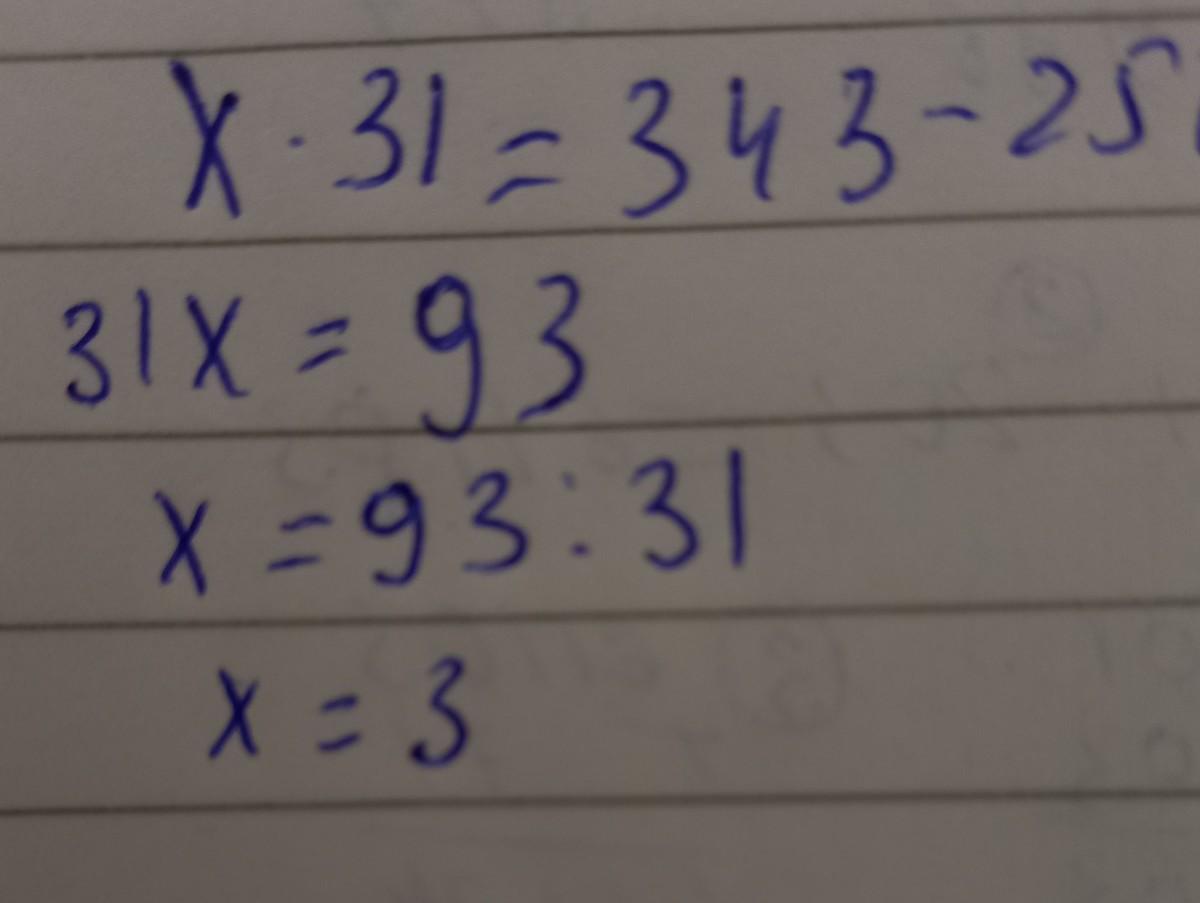 x · 31 = 343 - 25
31x = 93
x = 93 : 31
x = 3